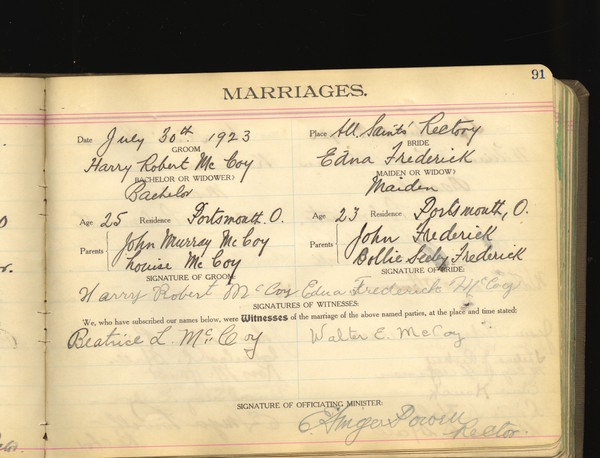 91
MARRIAGES.
Date July 30th 1923 Place All Saints' Rectory
GROOM BRIDE
Harry Robert McCoy Edna Frederick
BACHELOR OR WIDOWER? MAIDEN OR WIDOW?
Bachelor Maiden
Age 25 Residence Portsmouth. O. Age 23 Residence Portsmouth, O.
Parents John Murray McCoy Parents John Frederick
Louise McCoy Frederick
SIGNATURE OF GROOM: SIGNATURE OF BRIDE:
Harry Robert McCoy Edna Frederick McCoy
SIGNATURES OF WITNESSES:
We, who have subscribed our names below, were Witnesses of the marriage of the above named parties, at the place and time stated:
Beatrice L. McCoy Walter E. McCoy
SIGNATURE OF OFFICIATING MINISTER:
Rector.